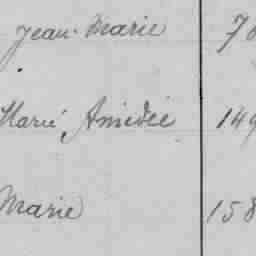 Jean Marie 70
Marie Amédée 149
Marie 158